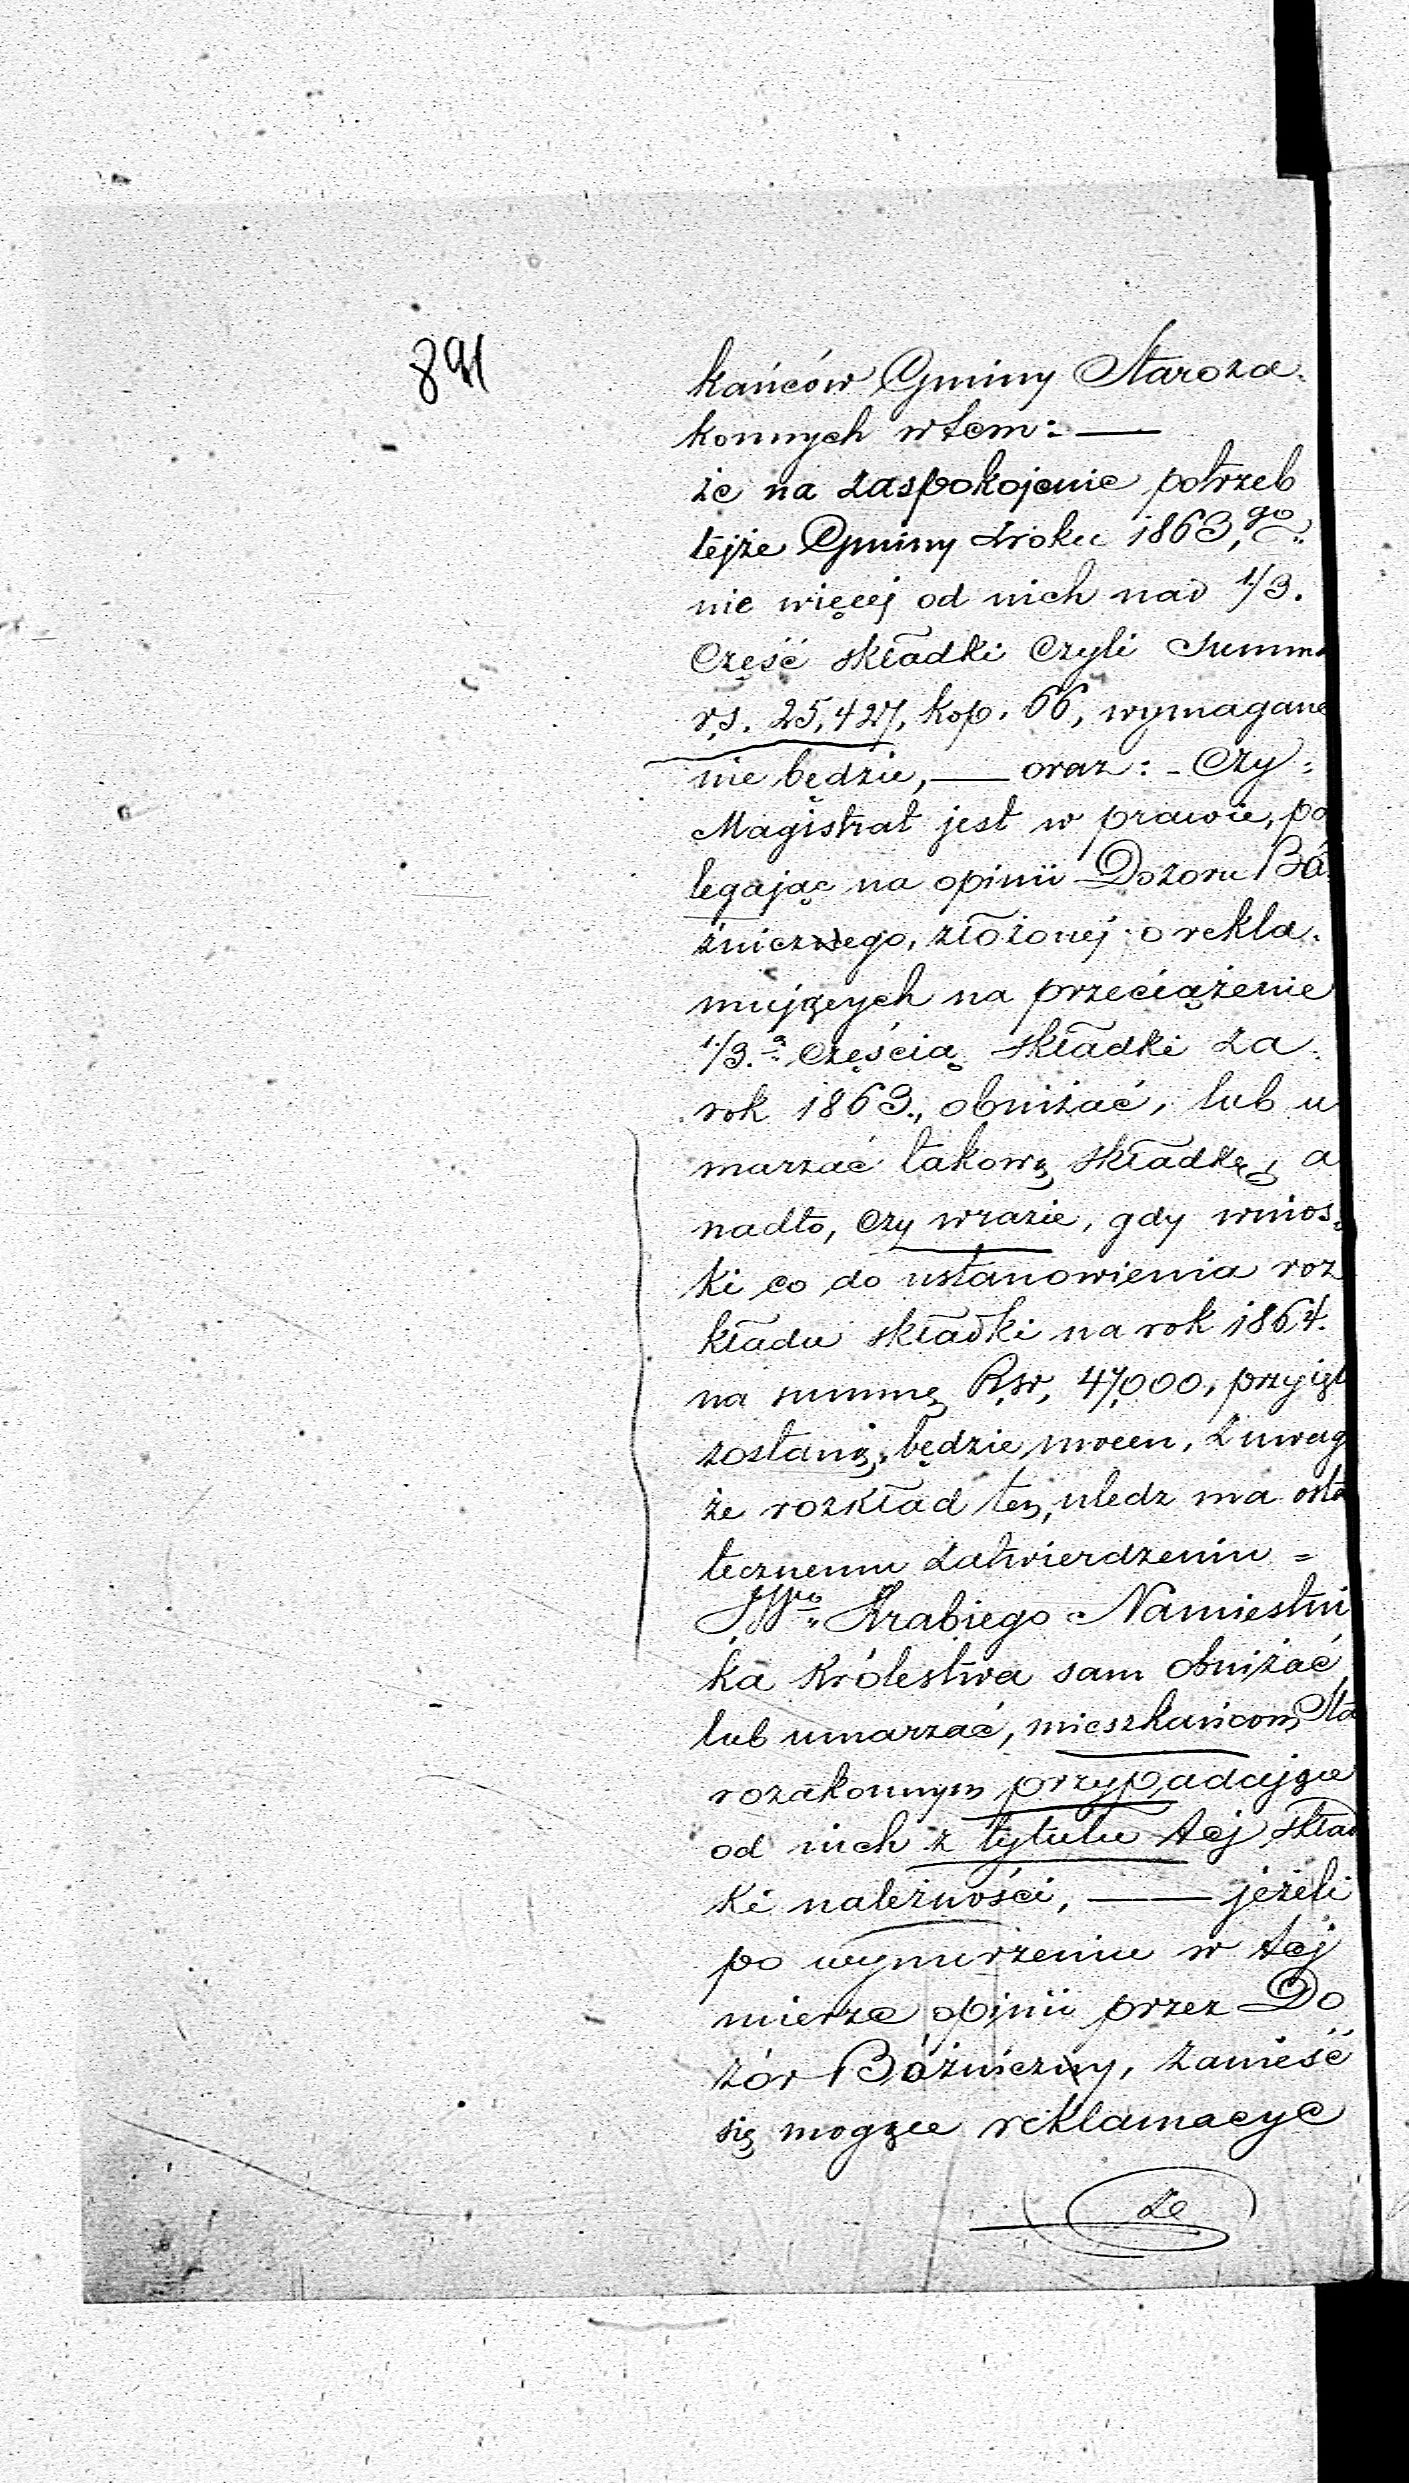 891
kańców Gminy Staroza=
konnych w tem: —
że na zaspokojenie potrzeb
tejże Gminy zroku 1863,go
nie więcej od nich nad 1/3.
Część składki czyli Summa
rs. 25,427, kop. 66, wymagane
nie będzie, — oraz: - Czy:
Magistrat jest w prawie, po
legając na opinii Dozoru Bó=
źniczego, złożonej o rekla=
mujących na przeciążenie
1/3.ą częścią składki za
rok 1863., obniżać, lub u
marzać takową składkę, a
nadto, czy wrazie, gdy wnios=
ki co do ustanowienia roz
kładu składki na rok 1864.
na summę Rsr, 47,000, przyięt
zostaną, będzie mocen, z uwag
że rozkład ten, uledz ma osta
tecznemu zatwierdzeniu =
JWo Hrabiego Namiestni
ka Królestwa sam obniżać
lub umarzać, mieszkańcom Sta
rozakonnym przypadające
od nich z tytułu tej skład
ki należności, — jeżeli
po wynurzeniu w tej
mierze opinii przez Do
zór Bóźniczy, zanieść
się mogące reklamacye
ze